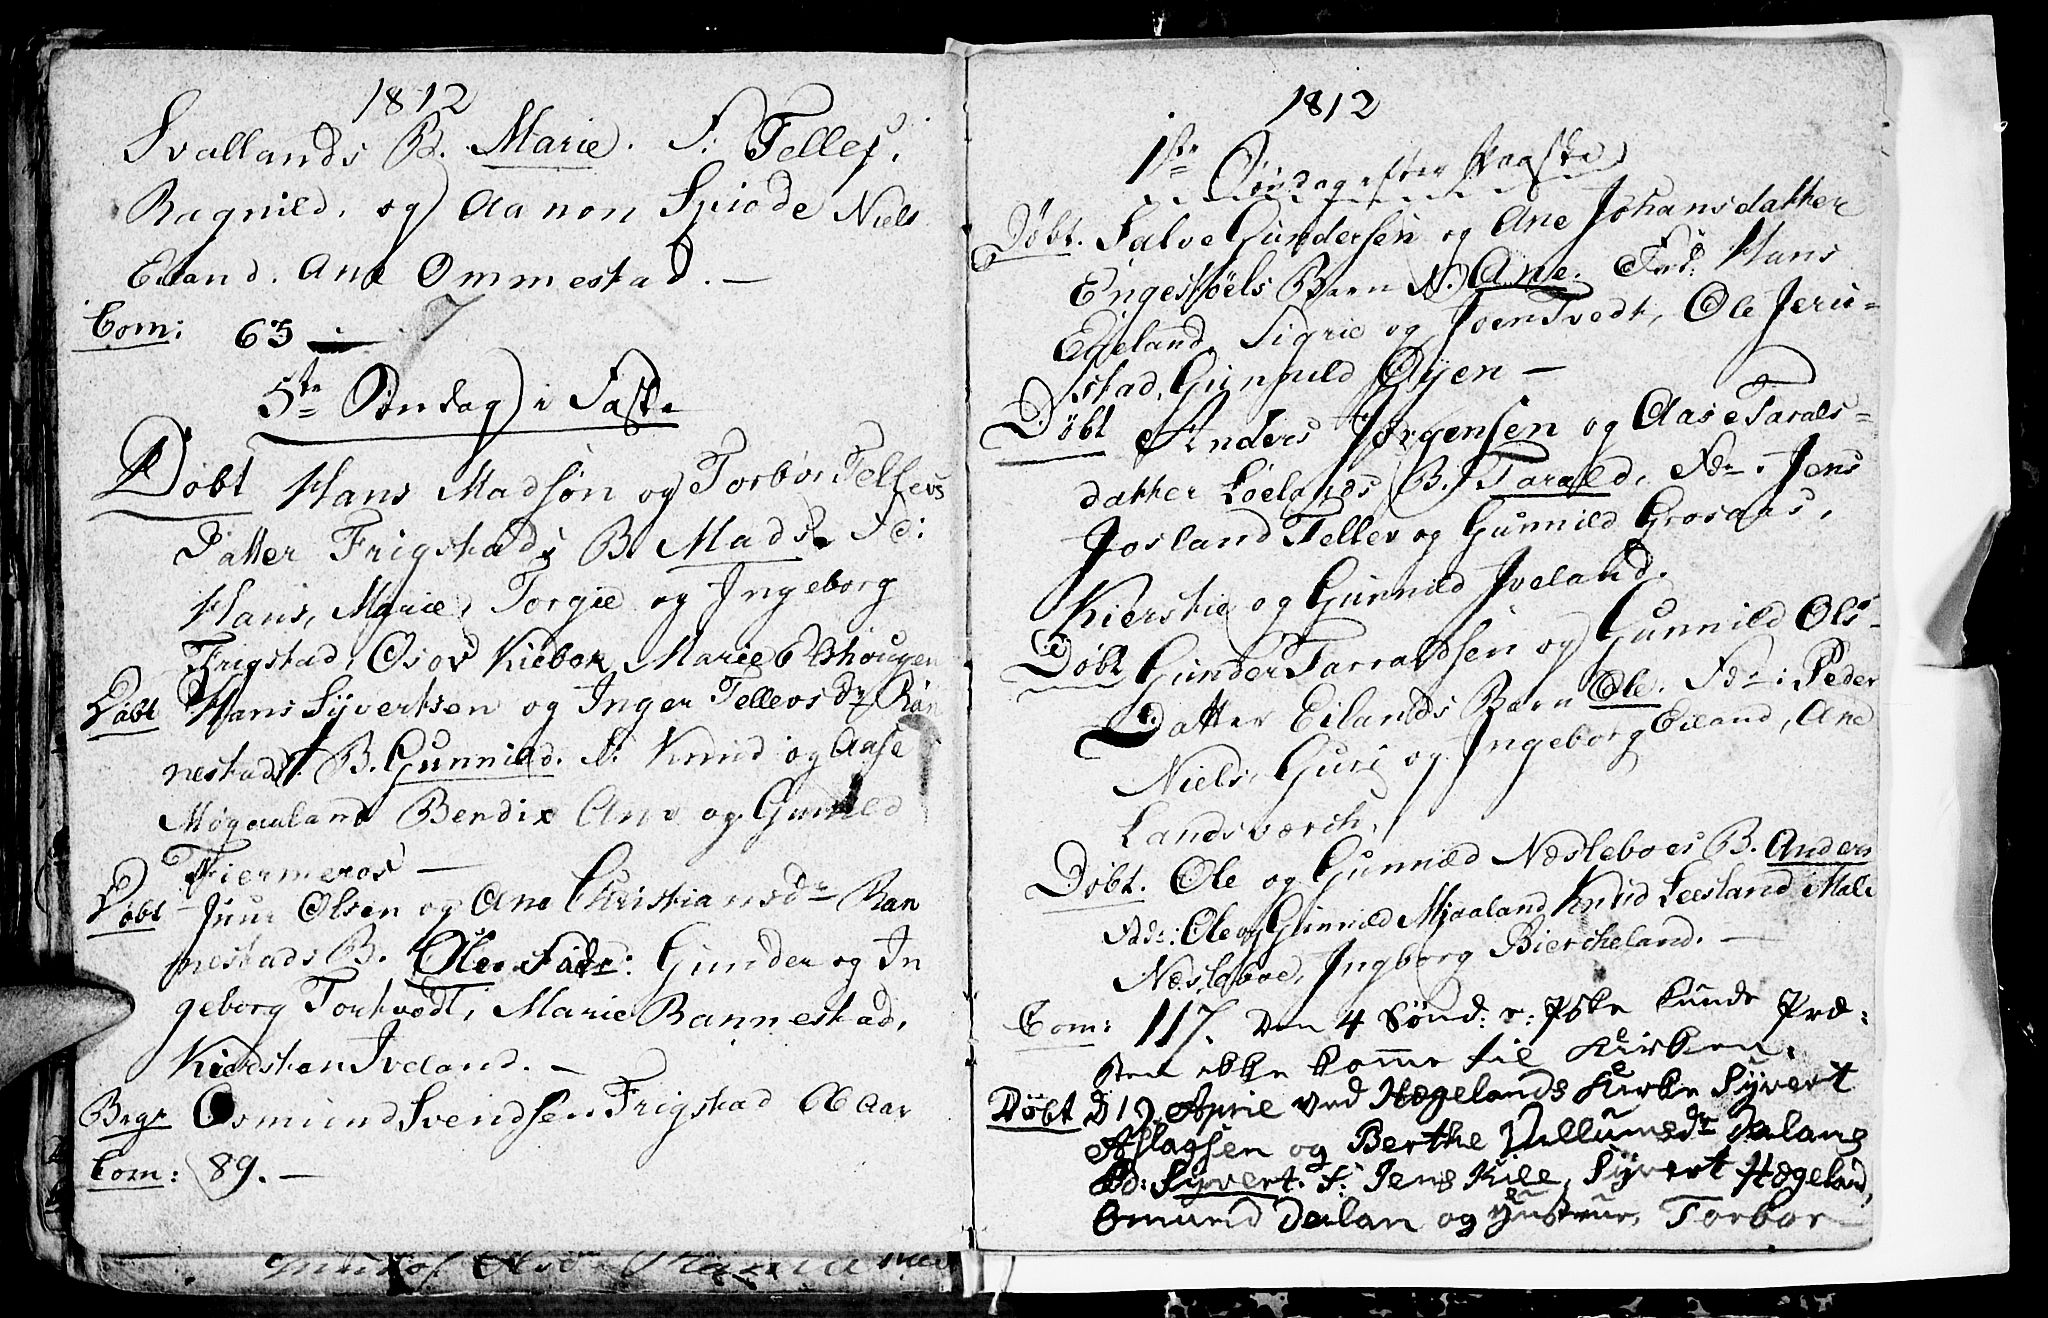 1812
Svallands B. Marie. F. Tellef,
Ragnild, og Aanon Spiøde Niels
Eiland. Ane Ommestad. —
Com: 63
5te Søndag i Faste
Døbt Hans Madsøn og Torbor Tellevs
Datter Frigstads B. Mads. Fd:
Hans, Marie, Torgie og Ingeborg
Frigstad, Osov Kiebok, Marie
Døbt Hans Syvertsen og Inger Tellevs Dr Rön
nestads B. Gunnild. F. Knud og Aase
Møgaaland Bendix Ane og Gunild
Fiermeros —
Døbt Juur Olsen og Ane Christiansdr Ran
nestads B. Ole. Fadr: Gunder og In
geborg Tortvedt, Marie Rannestad,
Kiersten Iveland. —
Begr Osmund Svendsen Frigstad Aar
Com: 89. —
1812
1ste Søndag efter Paaske
Døbt. Salve Gundersen og Ane Johansdatter
Engestøels Barn N. Ane. Fad: Hans
Eigeland, Sigrie og Joen Tvedt, Ole Jeru-
stad, Gunnild Øyen —
Døbt Anders Jørgensen og Aase Tarals-
datter Løelands B. Tarald, Fdr. Jens
Josland Tellev og Gunnild Grosaas,
Kierstie og Gunnild Iveland.
Døbt Gunder Tarraldsen og Gunnild Ols-
Datter Eilands Barn Ole. Fdr: Peder
Niels, Guri og Ingeborg Eiland, Ane
Landsværch,
Døbt. Ole og Gunnild Næsleboes B. Anders
Fadr: Ole og Gunnild Mjaaland Knud Leesland Mali
Næsleboe, Ingborg Bierckeland. —
Com: 117. Den 4 Sønd: e: Pske kunde Præ:
sten ikke komme til Kirken.
Døbt D 19 April ved Hægelands Kirke Syvert
Aslagsen og Berthe Villumsdr Dalans
B: Syvert. F: Jens Kile, Syvert Hægeland,
Omund Dalan og Hustrue, Torbor